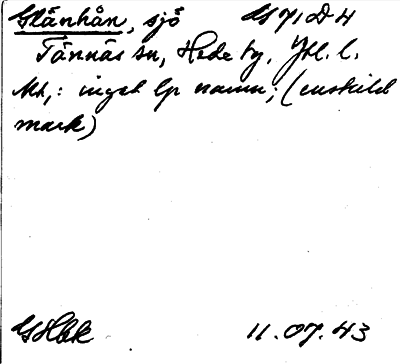 Glånhån, sjö GS 71, D4
Tännäs sn, Hede tg, Jtl. l.
Mt,: inget lp namn; (enskild
mark)
GHbk 11.07.43